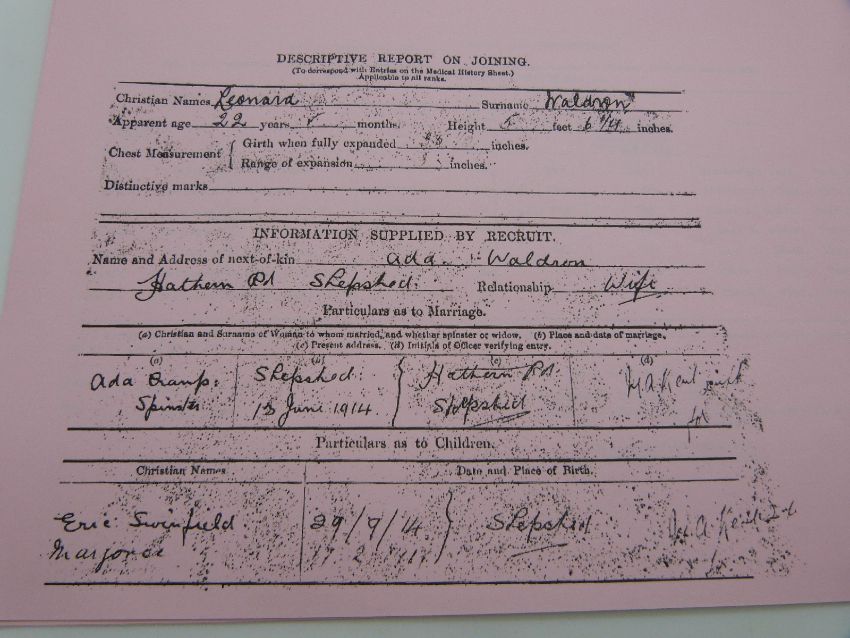 DESCRIPTIVE REPORT ON JOINING.
(To correspond with Entries on the Medical History Sheet.)
Applicable to all ranks.
Christian Names Leonard Surname Waldron
Apparent age 22 years months. Height 5 feet 6 1/4 inches.
Chest Measurement { Girth when fully expanded inches.
Range of expansion inches.
Distinctive marks
INFORMATION SUPPLIED BY RECRUIT.
Name and Address of next-of-kin Ada Waldron
Hathern Rd Shepshed. Relationship Wife
Particulars as to Marriage.
(a) Christian and Surname of Woman to whom married, and whether spinster or widow. (b) Place and date of marriage.
(c) Present address. (d) Initials of Officer verifying entry.
(a) (b) (c) (d)
Ada Shepshed: Hathern Rd
Spinster 13 June 1914 Shepshed
Particulars as to Children.
Christian Names Date and Place of Birth.
Eric Swinfield 29/9/14 } Shepshed
Marjorie 17